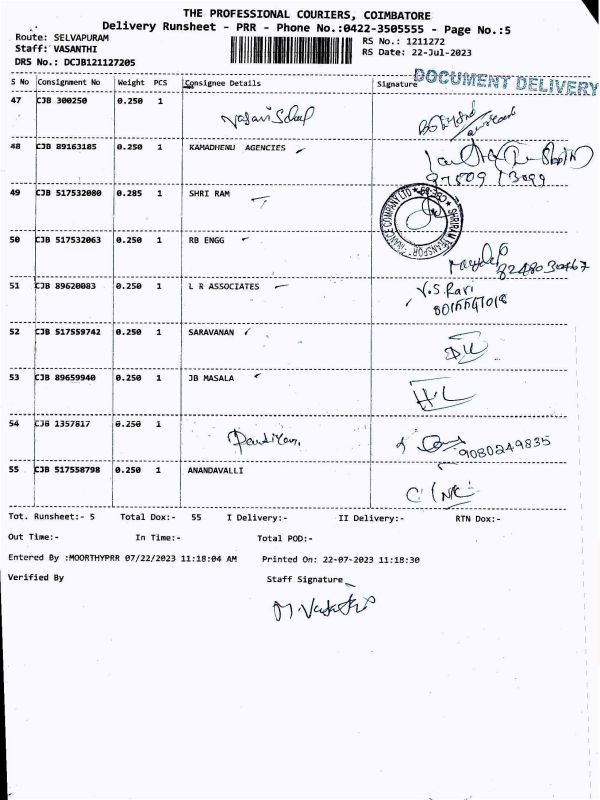 THE PROFESSIONAL COURIERS, COIMBATORE
Delivery Runsheet - PRR - Phone No.:0422-3505555 - Page No.:5
Route: SELVAPURAM
RS No.: 1211272
Staff: VASANTHI
RS Date: 22-Jul-2023
DRS No.: DCJB121127205
S No Consignment No Weight PCS Consignee Details Signature
DOCUMENT DELIVERY
47 CJB 300250 0.250 1
48 CJB 89163185 0.250 1 KAMADHENU AGENCIES
49 CJB 517532080 0.285 1 SHRI RAM
50 CJB 517532063 0.250 1 RB ENGG
51 CJB 89620083 0.250 1 L R ASSOCIATES V.S.Ravi
52 CJB 517559742 0.250 1 SARAVANAN
53 CJB 89659940 0.250 1 JB MASALA
54 CJB 1357817 0.250 1 Pandiyan,
9080249835
55 CJB 517558798 0.250 1 ANANDAVALLI
Tot. Runsheet:- 5 Total Dox:- 55 I Delivery:- II Delivery:- RTN Dox:-
Out Time:- In Time:- Total POD:-
Entered By :MOORTHYPRR 07/22/2023 11:18:04 AM Printed On: 22-07-2023 11:18:30
Verified By Staff Signature
M.Vasanthi